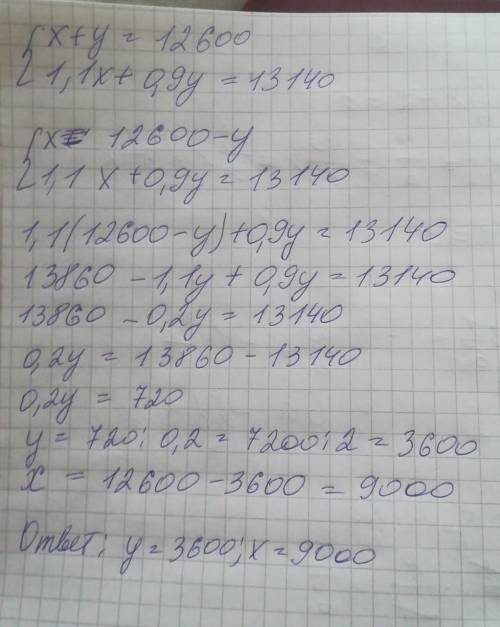 {x+y = 12600
{1,1x+0,9y = 13140
{x= 12600-y
{1,1x+0,9y = 13140
1,1(12600-y)+0,9y = 13140
13860 - 1,1y + 0,9y = 13140
13860 - 0,2y = 13140
0,2y = 13860 - 13140
0,2y = 720
y = 720 : 0,2 = 7200 : 2 = 3600
x = 12600 - 3600 = 9000
Ответ: y = 3600; x = 9000